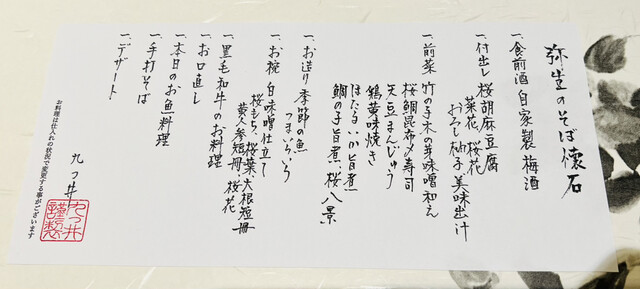 弥生のそば懐石
一、食前酒 自家製 梅酒
一、付出し 桜胡麻豆腐
菜花、桜花
おろし柚子 美味出汁
一、前菜 竹の子木の芽味噌和え
桜鯛昆布〆寿司
天豆まんじゅう
鶏黄味焼き
ほたるいか旨煮
鯛の子旨煮、桜八景
一、お造り 季節の魚
つまいろいろ
一、お椀 白味噌仕立て
桜もち、桜葉、大根短冊
黄人参短冊、桜花
一、黒毛和牛のお料理
一、お口直し
一、本日のお魚料理
一、手打そば
一、デザート
九つ井
九つ井
謹製
お料理は仕入れの状況で変更する事がございます